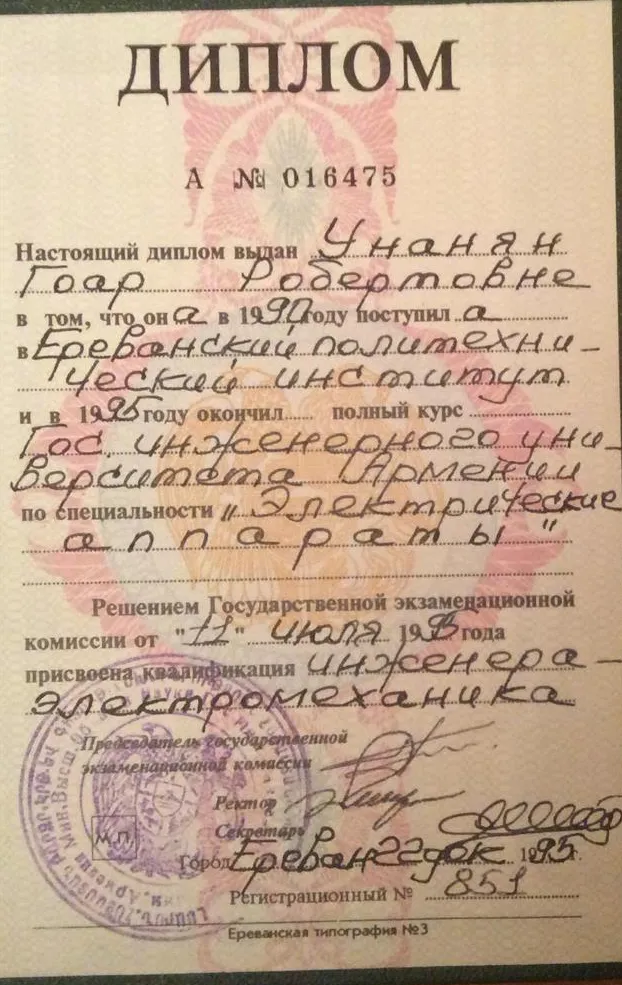 ДИПЛОМ
А № 016475
Настоящий диплом выдан Унанян
Гоар Робертовне
в том, что он а в 1990 году поступил а
в Ереванский политехни-
ческий институт
и в 1995 году окончил полный курс
Гос. инженерного уни-
верситета Армении
по специальности „Электрические
аппараты"
Решением Государственной экзаменационной
комиссии от "11" июля 1995 года
присвоена квалификация инженера-
электромеханика
Председатель государственной
экзаменационной комиссии
Ректор
Секретарь
М.П.
Город Ереван 22 дек 1995 г.
Регистрационный № 851
Ереванская типография №3